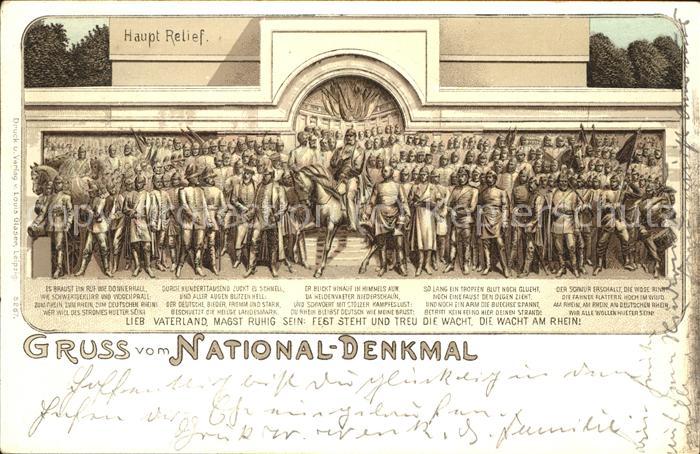 Haupt Relief.
Druck u. Verlag v. Louis Glaser, Leipzig.
ES BRAUST EIN RUF WIE DONNERHALL,
WIE SCHWERTGEKLIRR UND WOGENPRALL:
ZUM RHEIN, ZUM RHEIN, ZUM DEUTSCHEN RHEIN!
WER WILL DES STROMES HUETER SEIN?
DURCH HUNDERTTAUSEND ZUCKT ES SCHNELL,
UND ALLER AUGEN BLITZEN HELL:
DER DEUTSCHE, BIEDER, FROMM UND STARK,
BESCHUETZT DIE HEILGE LANDESMARK.
ER BLICKT HINAUF IN HIMMELS AUN,
DA HELDENVAETER NIEDERSCHAUN,
UND SCHWOERT MIT STOLZER KAMPFESLUST:
DU RHEIN BLEIBST DEUTSCH WIE MEINE BRUST!
SO LANG EIN TROPFEN BLUT NOCH GLUEHT,
NOCH EINE FAUST DEN DEGEN ZIEHT,
UND NOCH EIN ARM DIE BUECHSE SPANNT,
BETRITT KEIN FEIND HIER DEINEN STRAND!
DER SCHWUR ERSCHALLT, DIE WOGE RINNT,
DIE FAHNEN FLATTERN HOCH IM WIND:
AM RHEIN, AM RHEIN, AM DEUTSCHEN RHEIN,
WIR ALLE WOLLEN HUETER SEIN!
LIEB VATERLAND, MAGST RUHIG SEIN: FEST STEHT UND TREU DIE WACHT, DIE WACHT AM RHEIN!
GRUSS VOM NATIONAL-DENKMAL
Hoffentlich bist Du glücklich in den
Hafen der Ehe eingelaufen.
Familie
copyright protection Kopierschutz